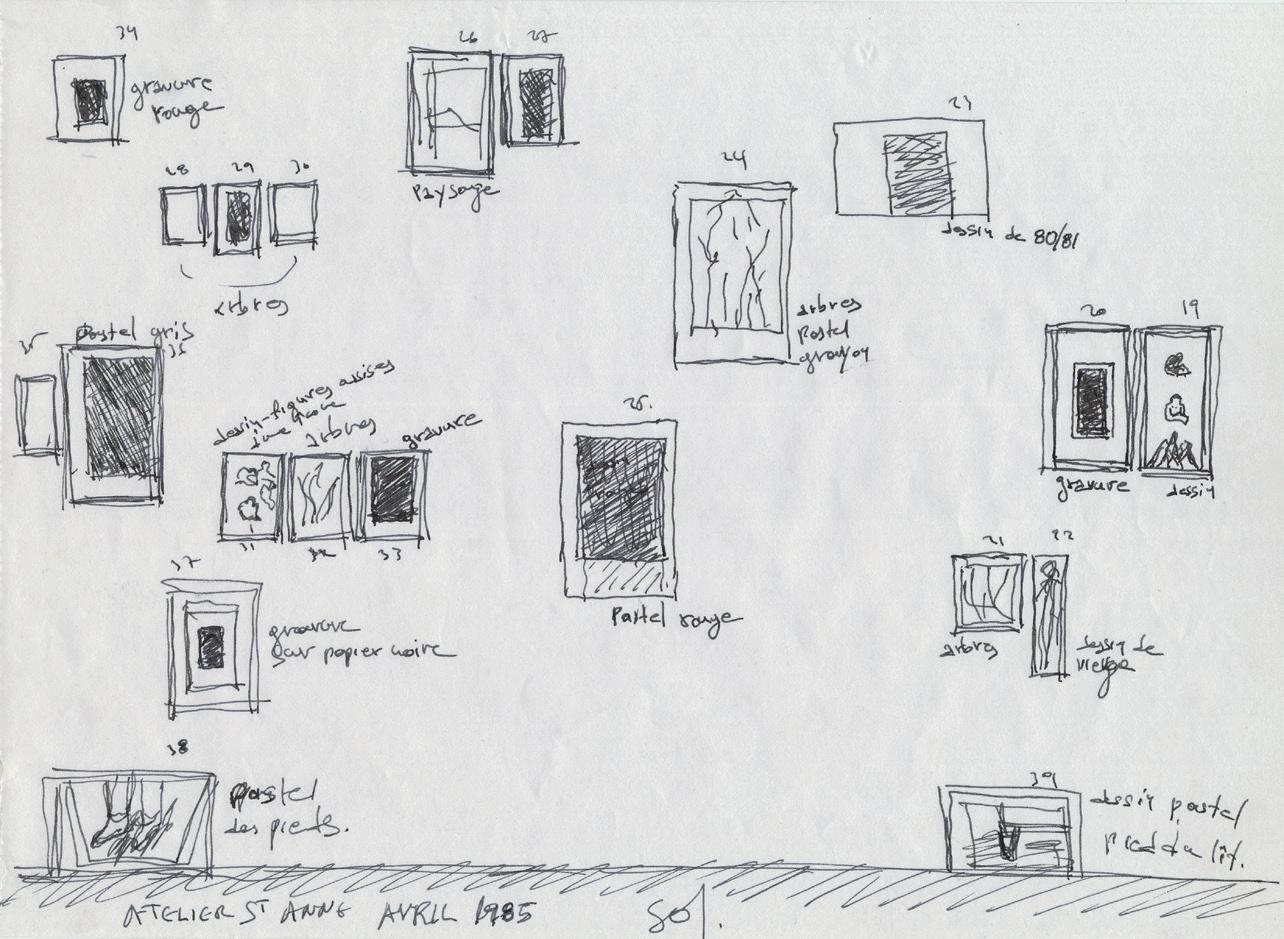 34
gravure
rouge
26
27
Paysage
23
dessin de 80/81
24
arbres
Pastel
28
29
30
arbres
20
19
gravure
dessin
pastel gris
35
dessin-figures assises
arbres
gravure
31
32
33
25.
Pastel rouge
21
22
arbres
dessin de
vierge
37
gravure
sur papier noire
38
pastel
des pieds.
39
dessin pastel
pied du lit.
ATELIER ST ANNE AVRIL 1985
sol.